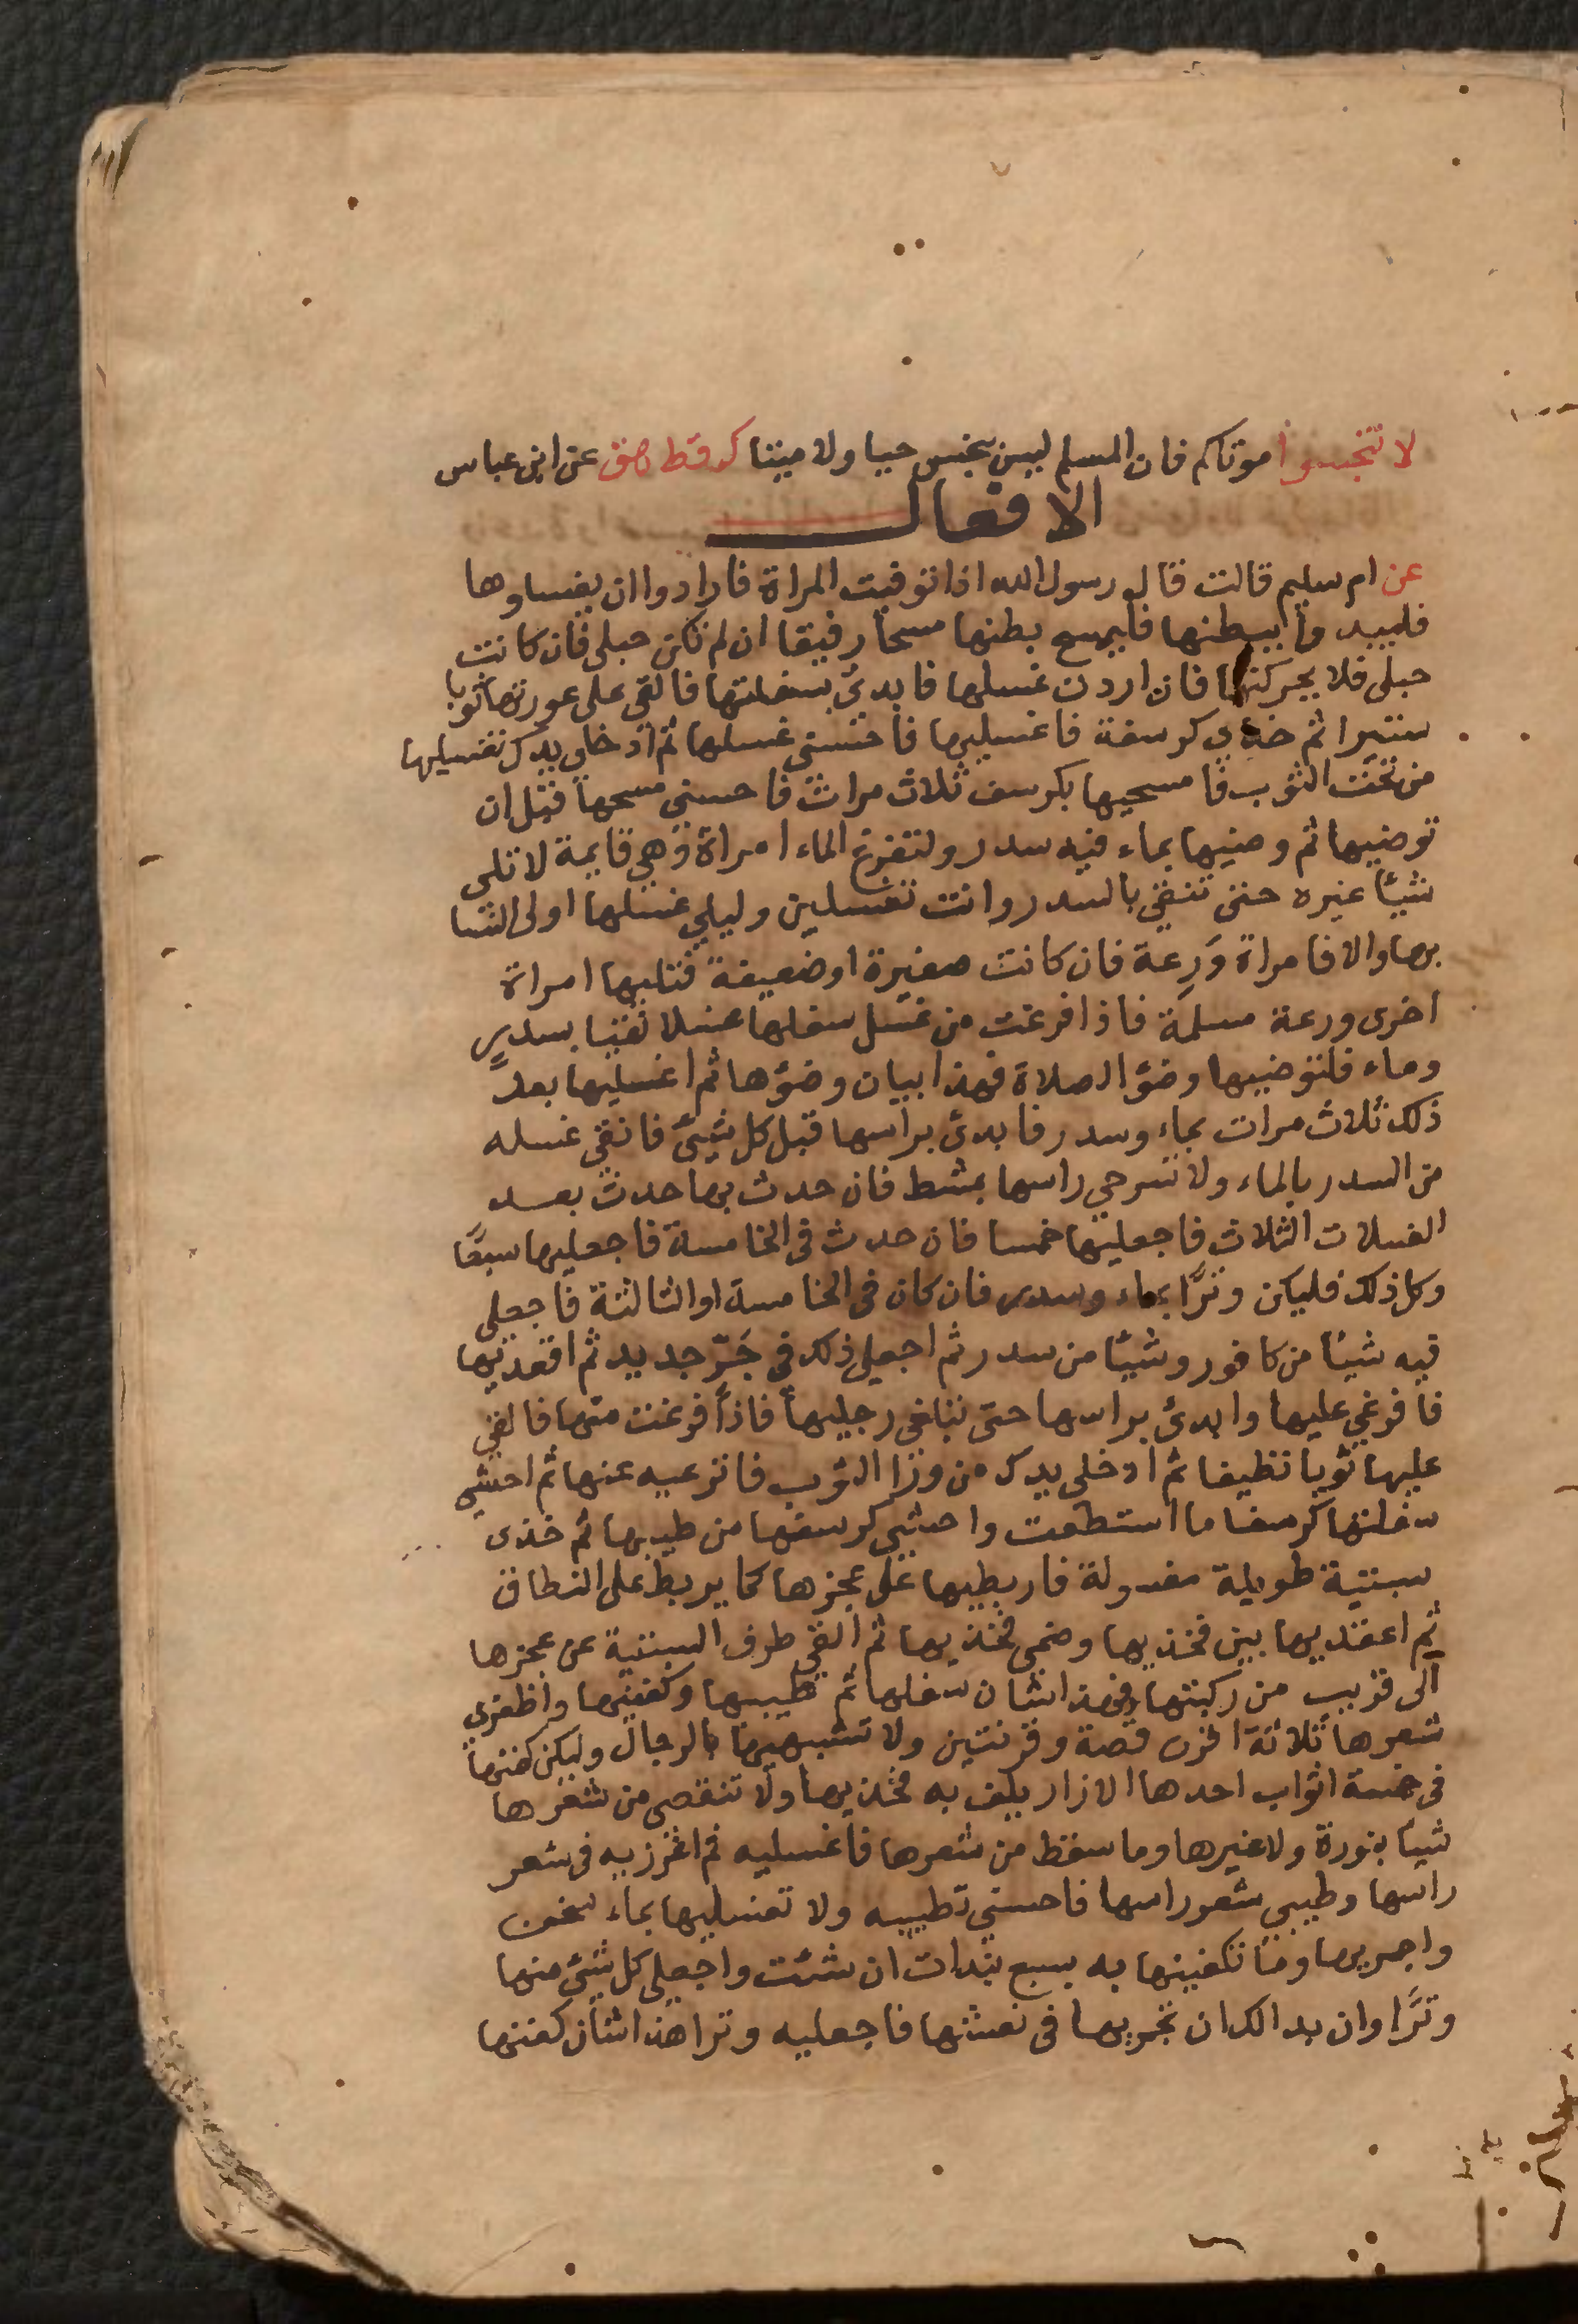 لا تنجسوا موتاكم فان المسلم ليس بنجس حيا ولا ميتا ك قط هق عن ابن عباس
الافعال
عن ام سليم قالت قال رسول الله اذا توفيت المراة فارادوا ان يغسلوها
فليبدوا ببطنها فليمسح بطنها مسحا رفيقا ان لم تكن حبلى فان كانت
حبلى فلا يحركنها فان اردت غسلها فابدئ بسفلتها فالقى على عورتها ثوبا
ستيرا ثم خذي كرسفة فاغسليها فاحسنى غسلها ثم ادخلى يدك تغسليها
من تحت الثوب فامسحيها بكرسف ثلاث مرات فاحسنى مسحها قبل ان
توضيها ثم وضيها بماء فيه سدر ولتفرغ الماء امراة وهي قايمة لا تلى
شيئا غيره حتى تنقي بالسدر وانت تغسلين وليلي غسلها اولى النسا
بها والا فامراة وَرِعة فان كانت صغيرة او ضعيفة فتليها امراة
اخرى ورعة مسلمة فاذا فرغت من غسل سفلها غسلا نقيا بسدرٍ
وماء فلتوضيها وضؤ الصلاة فهذا بيان وضؤها ثم اغسليها بعد
ذلك ثلاث مرات بماء وسدر فابدئ براسها قبل كل شيئ فانقي غسله
من السدر بالماء ولا تسرحي راسها بمشط فان حدث بها حدث بعد
الغسلات الثلاث فاجعليها خمسا فان حدث فى الخامسة فاجعليها سبعًا
وكل ذلك فليكن وترًا بماء وسدر فان كان فى الخامسة او الثالثة فاجعلى
فيه شيئا من كافور وشيئا من سدر ثم اجعلى ذلك فى جَرّ جديد ثم اقعديها
فافرغي عليها وابدئ براسها حتى تبلغي رجليها فاذا فرغت منها فالقي
عليها ثوبا نظيفا ثم ادخلى يدك من ورا الثوب فانزعيه عنها ثم احشي
سفلتها كرسفا ما استطعت واحشي كرسفها من طيبها ثم خذى
سبنية طويلة مغسولة فاربطيها على عجزها كما يربط على النطاق
ثم اعقديها بين فخذيها وضمى فخذيها ثم القي طرف السبنية عن عجزها
الى قريب من ركبتها فهذا شان سفلها ثم طيبيها وكفنيها واظفري
شعرها ثلاثة اقرن قصة وقرنين ولا تشبهيها بالرجال وليكن كفنها
فى خمسة اثواب احدها الازار يلف به فخذيها ولا تنقصى من شعرها
شيئا بنورة ولا غيرها وما سقط من شعرها فاغسليه ثم اغرزيه فى شعر
راسها وطيبي شعر راسها فاحسني تطييبه ولا تغسليها بماء سخن
واجمريها وما تكفنينها به بسبع نبذات ان شئت واجعلى كل شيئ منها
وترًا وان بدا لك ان تجمريها فى نعشها فاجعليه وترا هذا شان كفنها